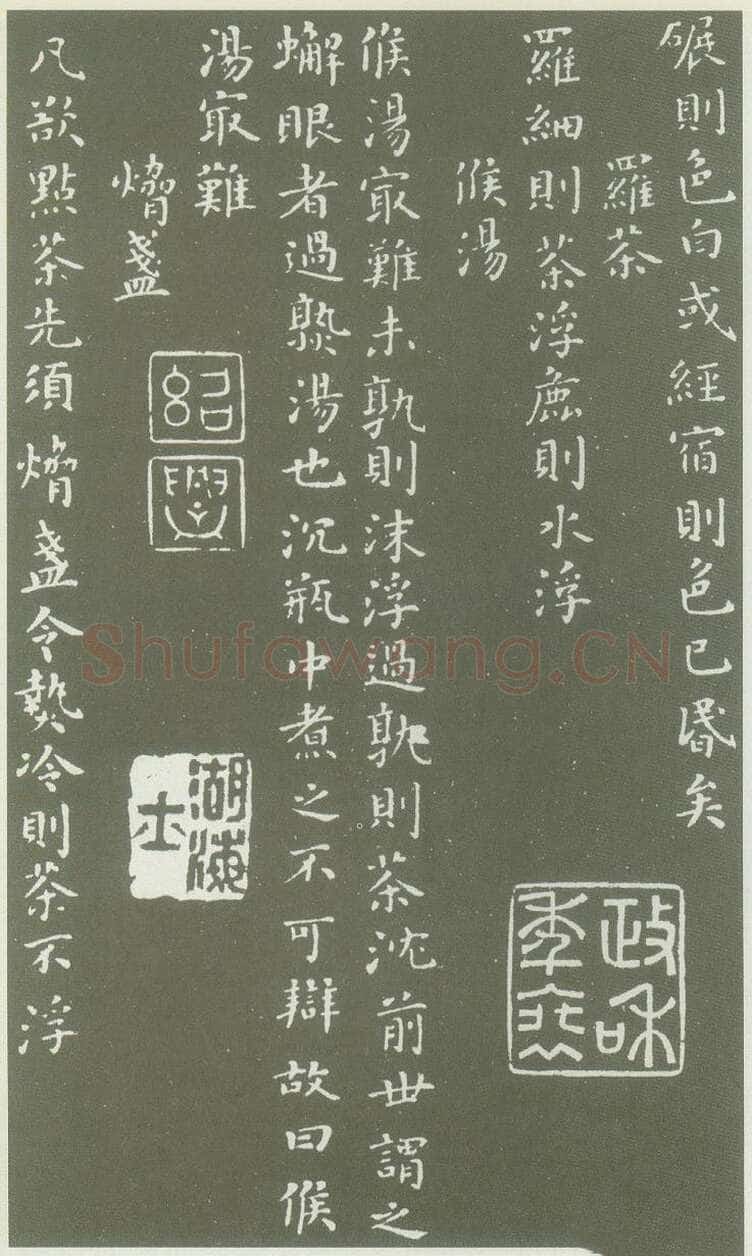 碾則色白或經宿則色已昬矣
羅茶
羅細則茶浮麁則水浮
政和
候湯
候湯冣難未孰則沫浮過孰則茶沈前世謂之
蠏眼者過熟湯也沉瓶中煮之不可辯故曰候
湯冣難
熁盞
紹興
凡欲點茶先須熁盞令熱冷則茶不浮
Shufawang.CN